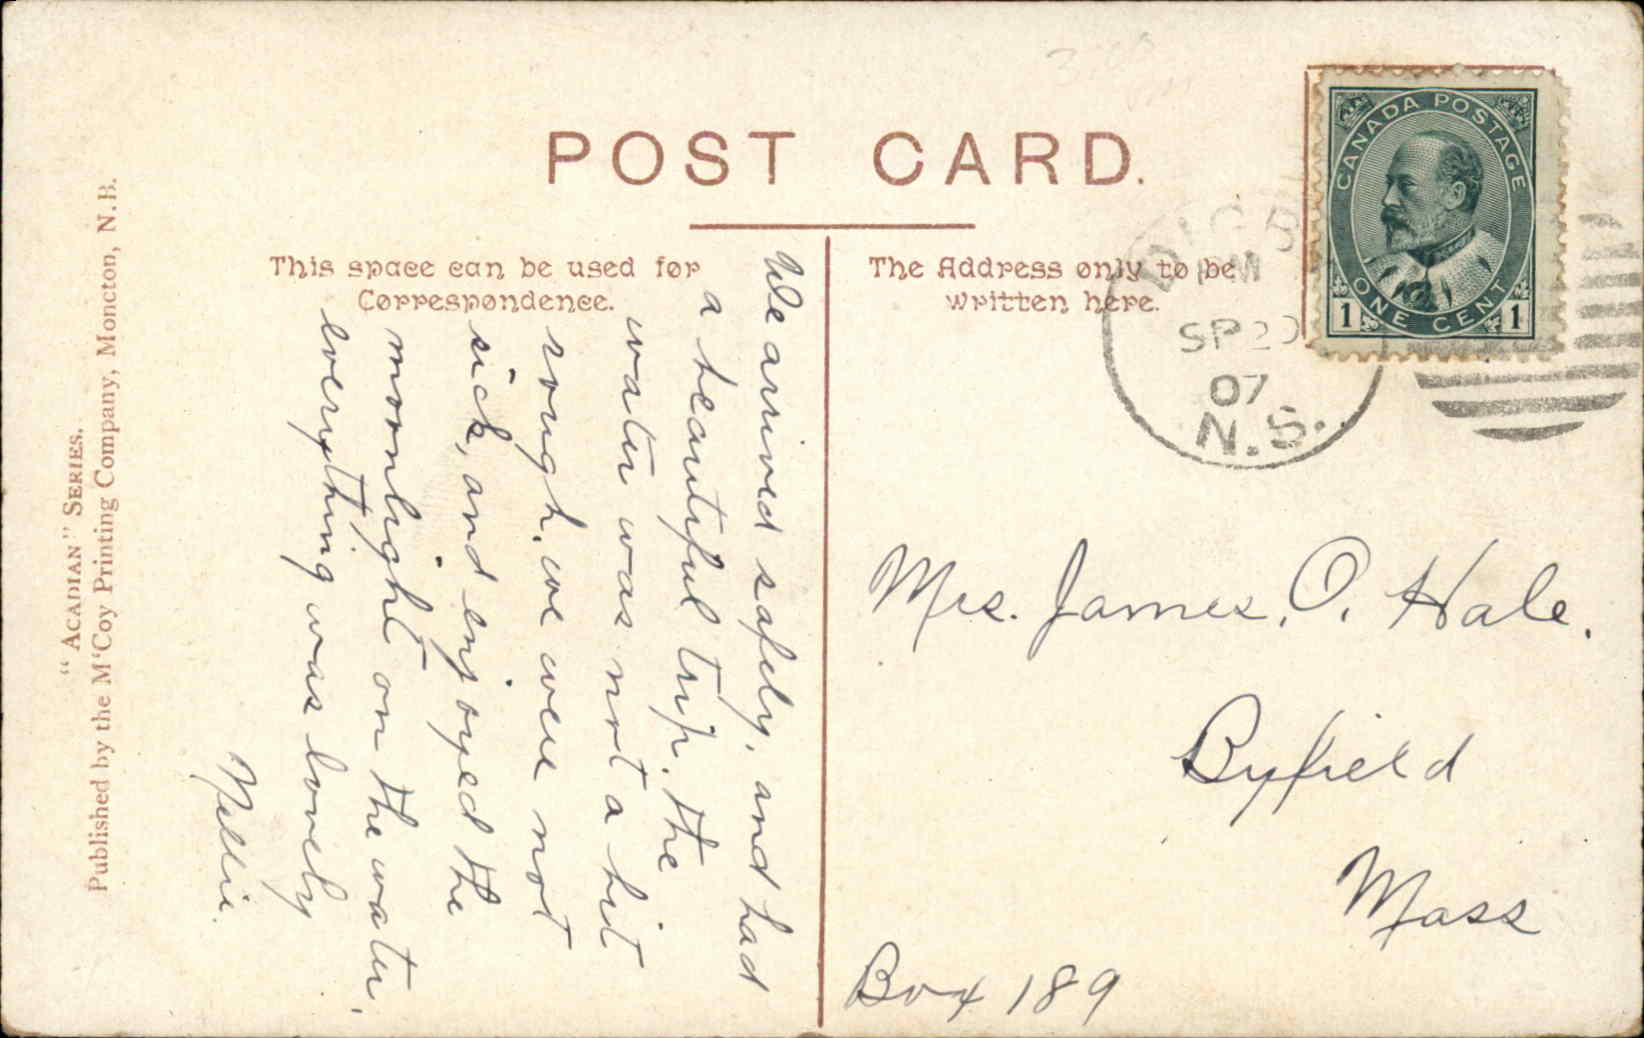 POST CARD.
This space can be used for
Correspondence.
The Address only to be
written here.
CANADA POSTAGE
ONE CENT
1 1
PM
SP 20
07
N.S.
We arrived safely, and had
a beautiful trip. the
water was not a bit
rough. we were not
sick, and enjoyed the
moonlight on the water,
everything was lovely
Nellie.
Mrs. James. O. Hale.
Byfield
Mass
Box 189
"ACADIAN" SERIES.
Published by the M'Coy Printing Company, Moncton, N.B.